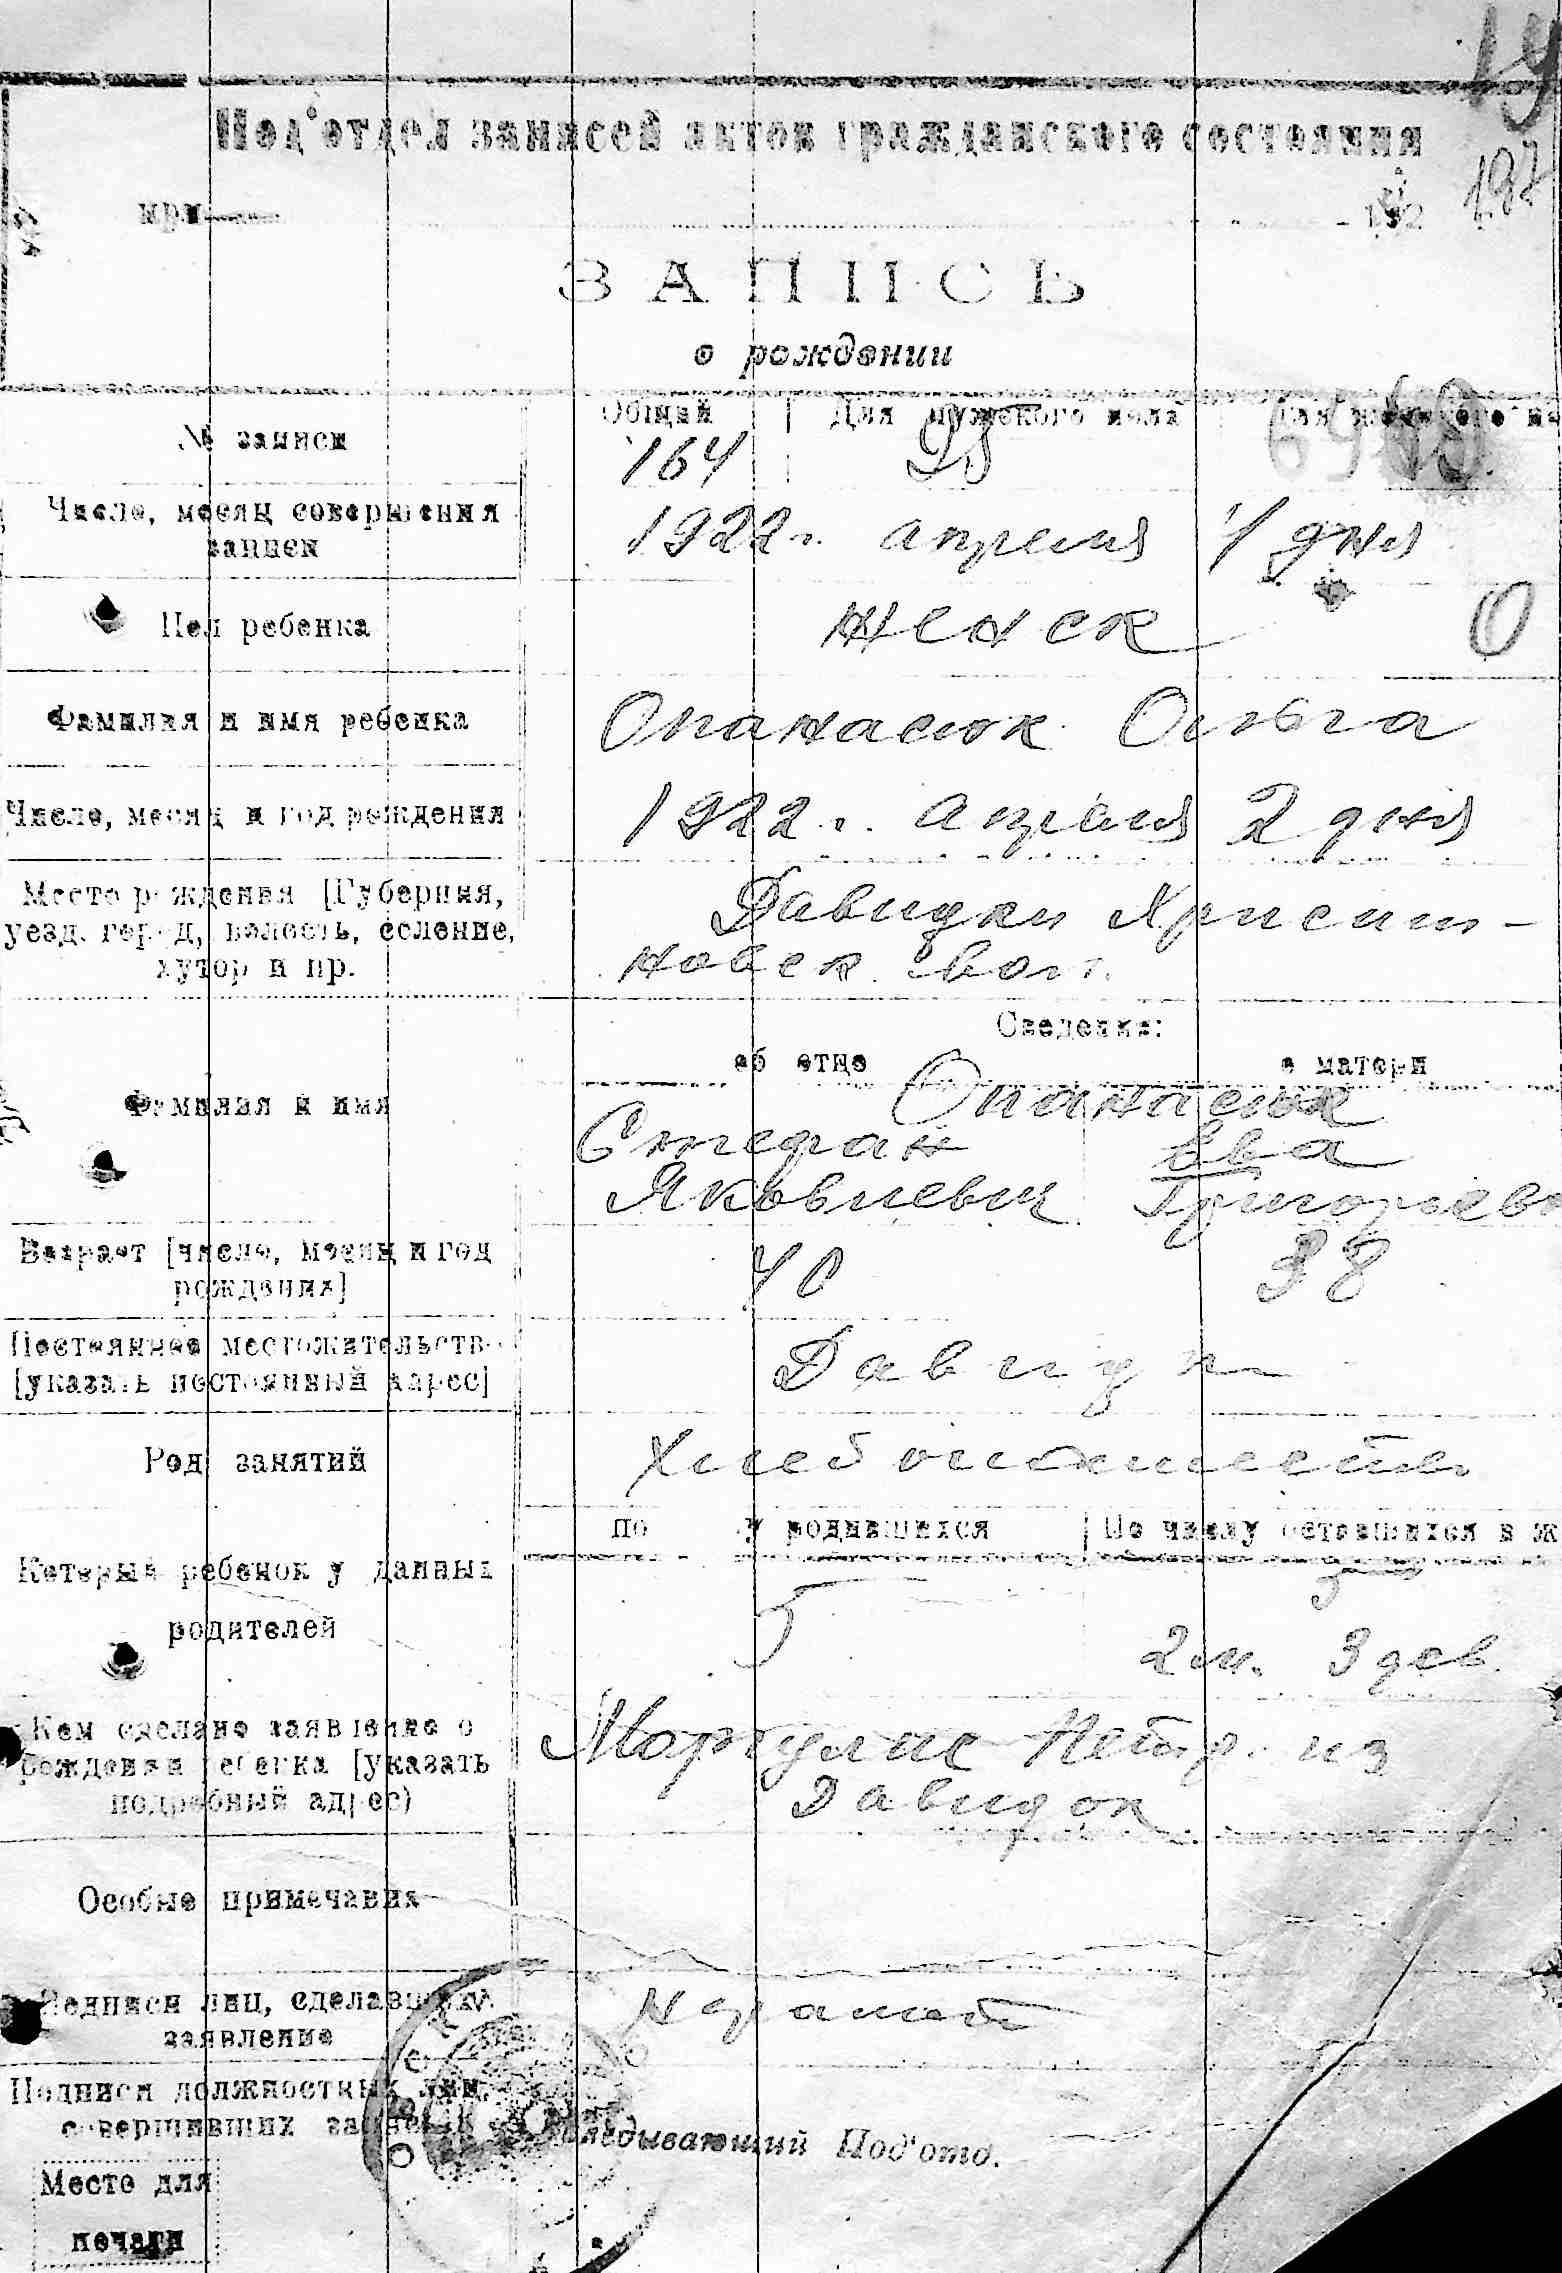 19
197
Под'отдел записей актов гражданского состояния
при
192
ЗАПИСЬ
о рождении
№ записи
Общий Для мужского пола Для женского по
164 95
Число, месяц совершения
записи
1922 г. апреля 4 дня
Пол ребенка
женск
О
Фамилия и имя ребенка
Опанасюк Ольга
Число, месяц и год рождения
1922 г. апреля 2 дня
Место рождения [Губерния,
уезд, город, волость, селение,
хутор и пр.
Давидки Христи-
новск вол.
Сведения:
об отце о матери
Фамилия и имя
Опанасюк
Стефан Ева
Яковлевич Григорьев
Возраст [число, месяц и год
рождения]
40 38
Постоянное местожительств
[указать постоянный адрес]
Давидк
Род занятий
Хлебопашество
Который ребенок у данных
родителей
по у родившихся По числу оставшихся в ж
5 5
2 м. 3 дев.
Кем сделано заявление о
рождении ребенка [указать
подробный адрес)
Маргулис Петр. из
Давидок
Особые примечания
Подписи лиц, сделавших
заявление
Неграмот
Подписи должностных лиц,
совершивших запись
Заведывающий Под'отд.
Место для
печати